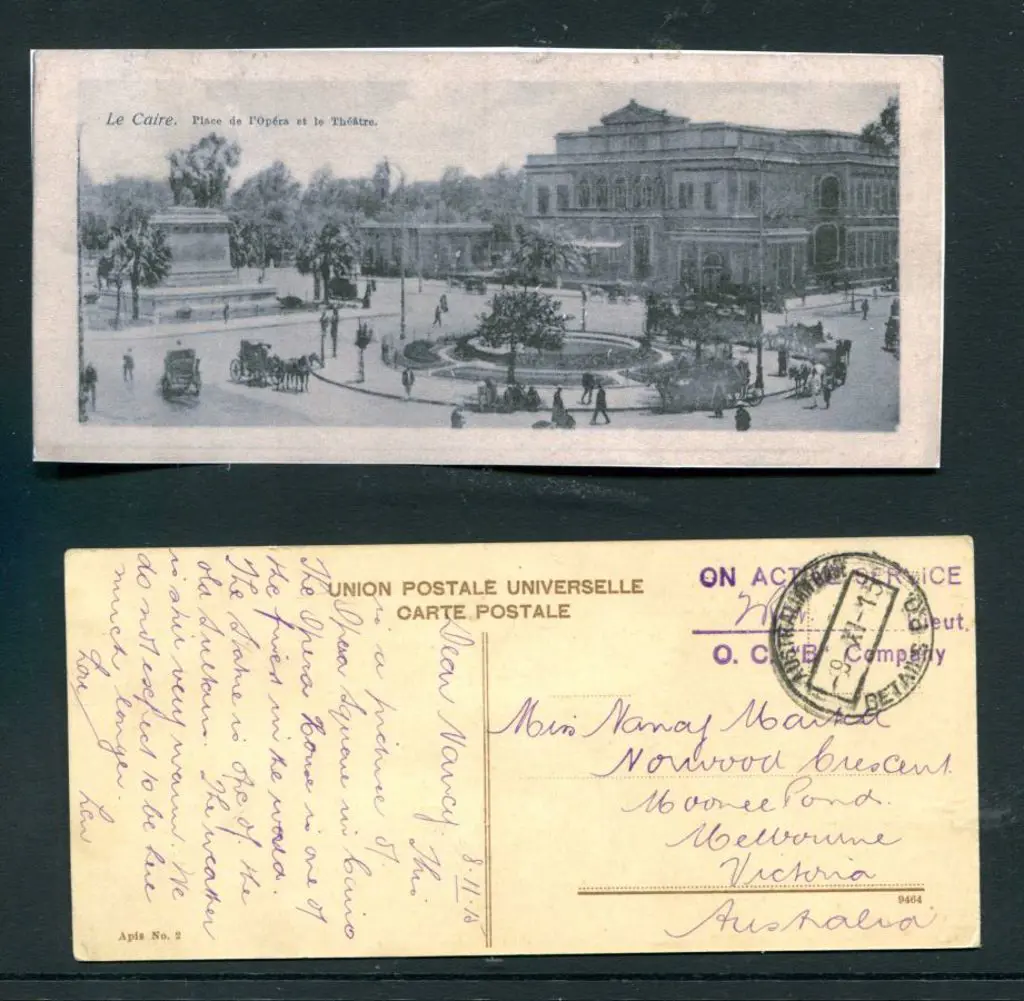 Le Caire. Place de l'Opéra et le Théâtre.
UNION POSTALE UNIVERSELLE
CARTE POSTALE
ON ACTIVE SERVICE
Lieut.
O. C. "B" Company
AUSTRALIAN
DETAILS P.O.
8-XI-15
8.11.15
Dear Nancy. This
is a picture of
Opera Square in Cairo
The Opera House is one of
the finest in the world.
The Statue is of the
old Sultan. The weather
is still very warm. We
do not expect to be here
much longer.
Love
Len
Miss Nancy
Norwood Crescent
Moonee Pond.
Melbourne
Victoria
Australia
9464
Apis No. 2